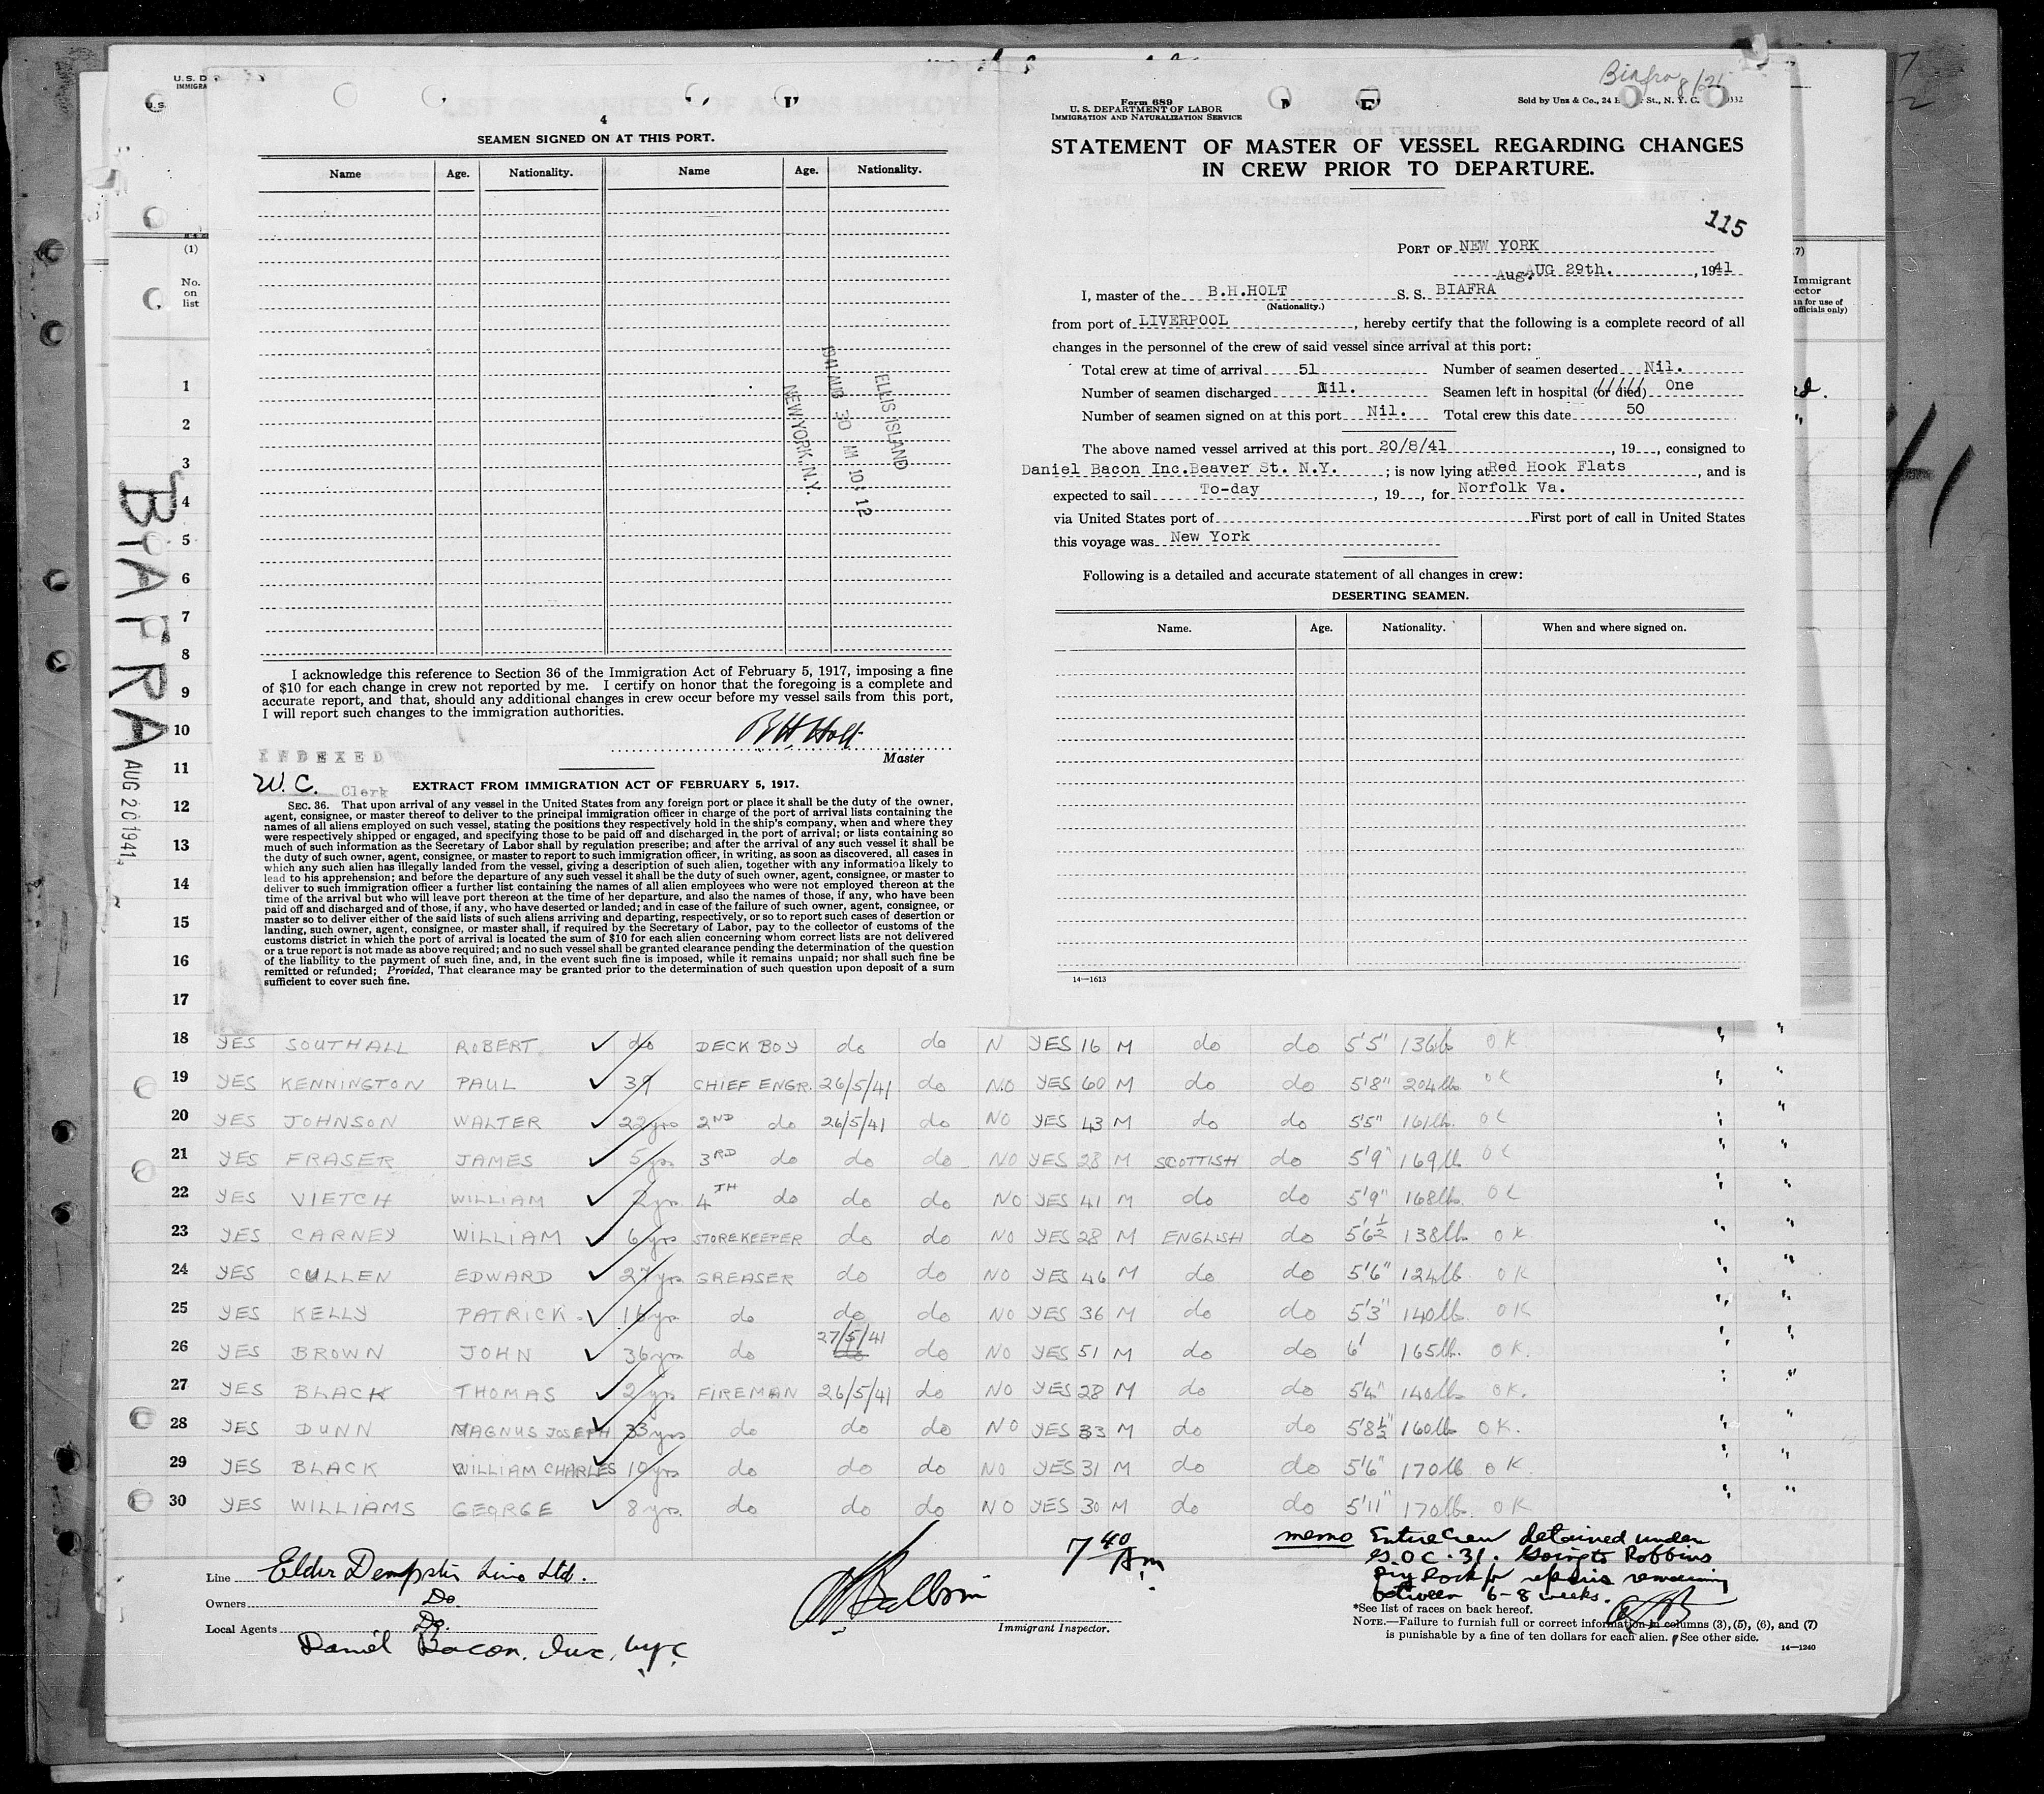 U.S. D
IMMIGRA
U.S.
(1)
No.
on
list
4
SEAMEN SIGNED ON AT THIS PORT.
Name Age. Nationality. Name Age. Nationality.
ELLIS ISLAND
1941 AUG 30 AM 10:12
NEW YORK, N.Y.
I acknowledge this reference to Section 36 of the Immigration Act of February 5, 1917, imposing a fine
of $10 for each change in crew not reported by me. I certify on honor that the foregoing is a complete and
accurate report, and that, should any additional changes in crew occur before my vessel sails from this port,
I will report such changes to the immigration authorities.
BH Holt
Master
INDEXED
W.C. Clerk
EXTRACT FROM IMMIGRATION ACT OF FEBRUARY 5, 1917.
SEC. 36. That upon arrival of any vessel in the United States from any foreign port or place it shall be the duty of the owner,
agent, consignee, or master thereof to deliver to the principal immigration officer in charge of the port of arrival lists containing the
names of all aliens employed on such vessel, stating the positions they respectively hold in the ship's company, when and where they
were respectively shipped or engaged, and specifying those to be paid off and discharged in the port of arrival; or lists containing so
much of such information as the Secretary of Labor shall by regulation prescribe; and after the arrival of any such vessel it shall be
the duty of such owner, agent, consignee, or master to report to such immigration officer, in writing, as soon as discovered, all cases in
which any such alien has illegally landed from the vessel, giving a description of such alien, together with any information likely to
lead to his apprehension; and before the departure of any such vessel it shall be the duty of such owner, agent, consignee, or master to
deliver to such immigration officer a further list containing the names of all alien employees who were not employed thereon at the
time of the arrival but who will leave port thereon at the time of her departure, and also the names of those, if any, who have been
paid off and discharged and of those, if any, who have deserted or landed; and in case of the failure of such owner, agent, consignee, or
master so to deliver either of the said lists of such aliens arriving and departing, respectively, or so to report such cases of desertion or
landing, such owner, agent, consignee, or master shall, if required by the Secretary of Labor, pay to the collector of customs of the
customs district in which the port of arrival is located the sum of $10 for each alien concerning whom correct lists are not delivered
or a true report is not made as above required; and no such vessel shall be granted clearance pending the determination of the question
of the liability to the payment of such fine, and, in the event such fine is imposed, while it remains unpaid; nor shall such fine be
remitted or refunded; Provided, That clearance may be granted prior to the determination of such question upon deposit of a sum
sufficient to cover such fine.
Biafra 8/21
Form 689
U. S. DEPARTMENT OF LABOR
IMMIGRATION AND NATURALIZATION SERVICE
Sold by Unz & Co., 24 St., N. Y. C. 332
STATEMENT OF MASTER OF VESSEL REGARDING CHANGES
IN CREW PRIOR TO DEPARTURE.
115
PORT OF NEW YORK
Aug. AUG 29th. , 1941
I, master of the B.H.HOLT S. S. BIAFRA
(Nationality.)
from port of LIVERPOOL , hereby certify that the following is a complete record of all
changes in the personnel of the crew of said vessel since arrival at this port:
Total crew at time of arrival 51 Number of seamen deserted Nil.
Number of seamen discharged Nil. Seamen left in hospital (or died) One
Number of seamen signed on at this port Nil. Total crew this date 50
The above named vessel arrived at this port 20/8/41 , 19 , consigned to
Daniel Bacon Inc.Beaver St. N.Y. ; is now lying at Red Hook Flats , and is
expected to sail To-day , 19 , for Norfolk Va.
via United States port of First port of call in United States
this voyage was New York
Following is a detailed and accurate statement of all changes in crew:
DESERTING SEAMEN.
Name. Age. Nationality. When and where signed on.
14—1613
7)
Immigrant
ector
n for use of
officials only)
BIAFRA
AUG 20 1941
1
2
3
4
5
6
7
8
9
10
11
12
13
14
15
16
17
18 YES SOUTHALL ROBERT ✓ do DECK BOY do do N YES 16 M do do 5'5" 136lb OK " "
19 YES KENNINGTON PAUL ✓ 39 CHIEF ENGR. 26/5/41 do NO YES 60 M do do 5'8" 204lb OK " "
20 YES JOHNSON WALTER ✓ 22yrs 2ND do 26/5/41 do NO YES 43 M do do 5'5" 161lb. OK " "
21 YES FRASER JAMES ✓ 5yrs 3RD do do do NO YES 28 M SCOTTISH do 5'9" 169lb OK " "
22 YES VIETCH WILLIAM ✓ 2yrs 4TH do do do NO YES 41 M do do 5'9" 168lb. OK " "
23 YES CARNEY WILLIAM ✓ 6yrs STOREKEEPER do do NO YES 28 M ENGLISH do 5'6½ 138lb OK " "
24 YES CULLEN EDWARD ✓ 27yrs GREASER do do NO YES 46 M do do 5'6" 124lb OK " "
25 YES KELLY PATRICK ✓ 16yrs do do do NO YES 36 M do do 5'3" 140lb OK " "
26 YES BROWN JOHN ✓ 36yrs do 27/5/41 do NO YES 51 M do do 6' 165lb. OK. " "
27 YES BLACK THOMAS ✓ 2yrs FIREMAN 26/5/41 do NO YES 28 M do do 5'4" 140lb OK. " "
28 YES DUNN MAGNUS JOSEPH ✓ 33yrs do do do NO YES 33 M do do 5'8½" 160lb OK. " "
29 YES BLACK WILLIAM CHARLES ✓ 10yrs do do do NO YES 31 M do do 5'6" 170lb OK. " "
30 YES WILLIAMS GEORGE ✓ 8yrs. do do do NO YES 30 M do do 5'11" 170lb. OK " "
Line Elder Dempster Line Ltd.
Owners Do.
Local Agents Do.
Daniel Bacon, Inc, NYC
Immigrant Inspector.
7 40 Am
memo Entire Crew detained under
G.O C-31. Going to Robbins
Dry Dock for repairs remaining
between 6-8 weeks.
*See list of races on back hereof.
NOTE.—Failure to furnish full or correct information in columns (3), (5), (6), and (7)
is punishable by a fine of ten dollars for each alien. See other side.
14—1240